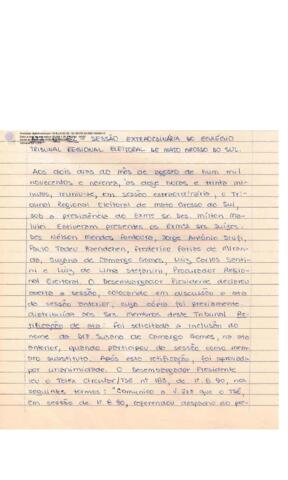 SESSÃO EXTRAORDINÁRIA DO EGRÉGIO
TRIBUNAL REGIONAL ELEITORAL DE MATO GROSSO DO SUL.
Aos dois dias do mês de agosto de hum mil
novecentos e noventa, às doze horas e trinta mi-
nutos, reuniu-se, em sessão extraordinária, o Tri-
bunal Regional Eleitoral de Mato Grosso do Sul,
sob a presidência do Exmº Sr. Des. Milton Ma-
lulei. Estiveram presentes os Exmºs Srs. Juízes
Des Nelson Mendes Fontoura, Jorge Antônio Siufi,
Paulo Tadeu Haendchen, Frederico Farias de Miran-
da, Suzana de Camargo Gomes, Luiz Carlos Santi-
ni e Luiz de Lima Stefanini, Procurador Regio-
nal Eleitoral. O Desembargador Presidente declarou
aberta a sessão, colocando em discussão a ata
da sessão anterior, cuja foi previamente
distribuída aos Srs. membros deste Tribunal. Re-
tificação de ata: foi solicitada a inclusão do
nome da Drª Suzana de Camargo Gomes, na ata
anterior, quando participou da sessão como mem-
bro substituto. Após esta retificação, foi aprovada
por unanimidade. O Desembargador Presidente
leu o Telex Circular/TSE nº 183, de 1º.8.90, nos
seguintes termos: "Comunico a V.Exª que o TSE,
em sessão de 1º.8.90, referendou despacho do